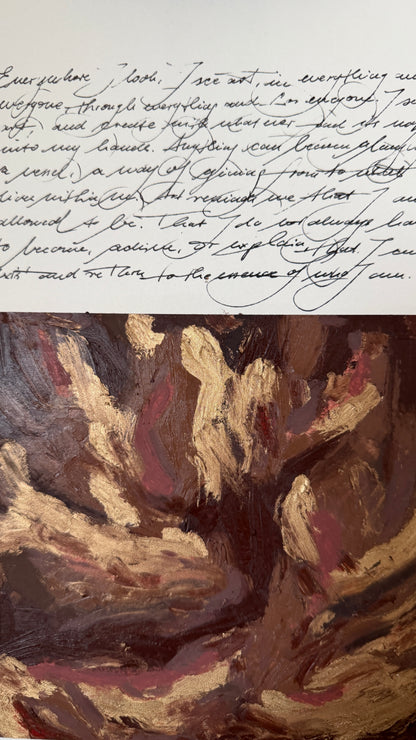 Everywhere I look, I see art, in everything an
everyone, through everything and for everyone. I s
art, and create with whatever and
into my hands. Anything can become
a vessel, a way of giving form to what
lives within me. Art reminds me that I am
allowed to be. That I do not always hav
to become, achieve, or explain. That I can
rest and return to the essence of who I am.